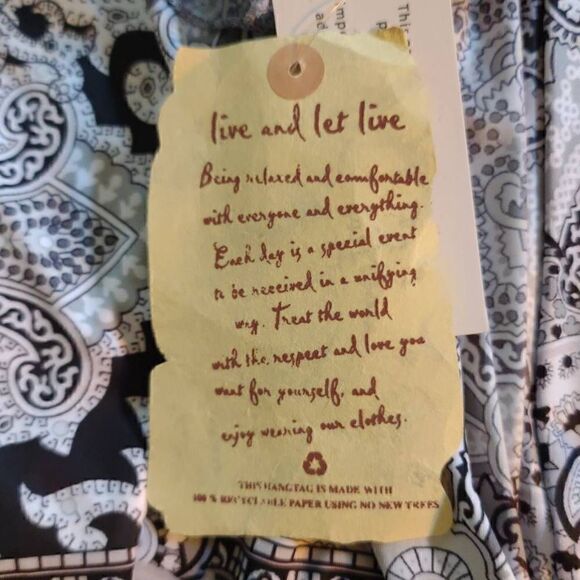 live and let live
Being relaxed and comfortable
with everyone and everything.
Each day is a special event
to be received in a unifying
way. Treat the world
with the respect and love you
want for yourself, and
enjoy wearing our clothes.
THIS HANGTAG IS MADE WITH
100 % RECYCLABLE PAPER USING NO NEW TREES